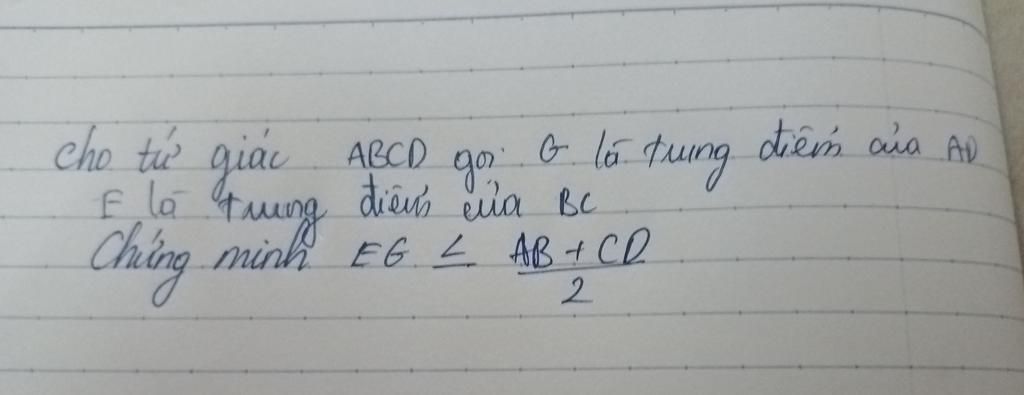 Cho tứ giác ABCD gọi G là trung điểm của AD
E là trung điểm của BC
Chứng minh EG ≤ AB + CD / 2